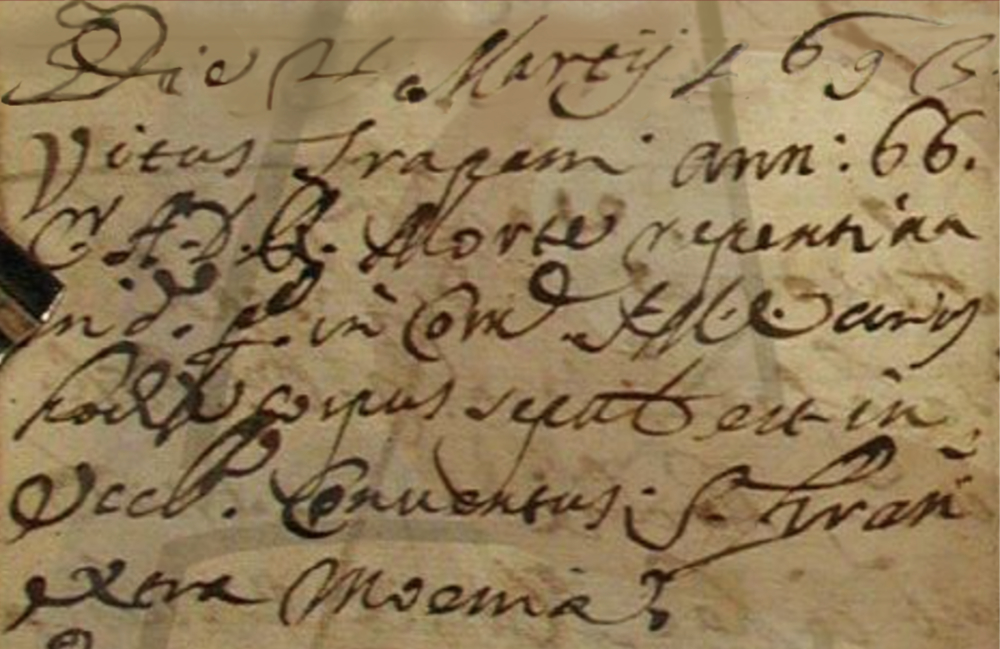 Die 21 Martij 1693.
Vitus Trapani ann: 66.
C. A. D. R. Morte repentina
in d. P. in Com S. M. E
corpus sepult est in
Eccl. Conventus S. Fran
extra Moenia